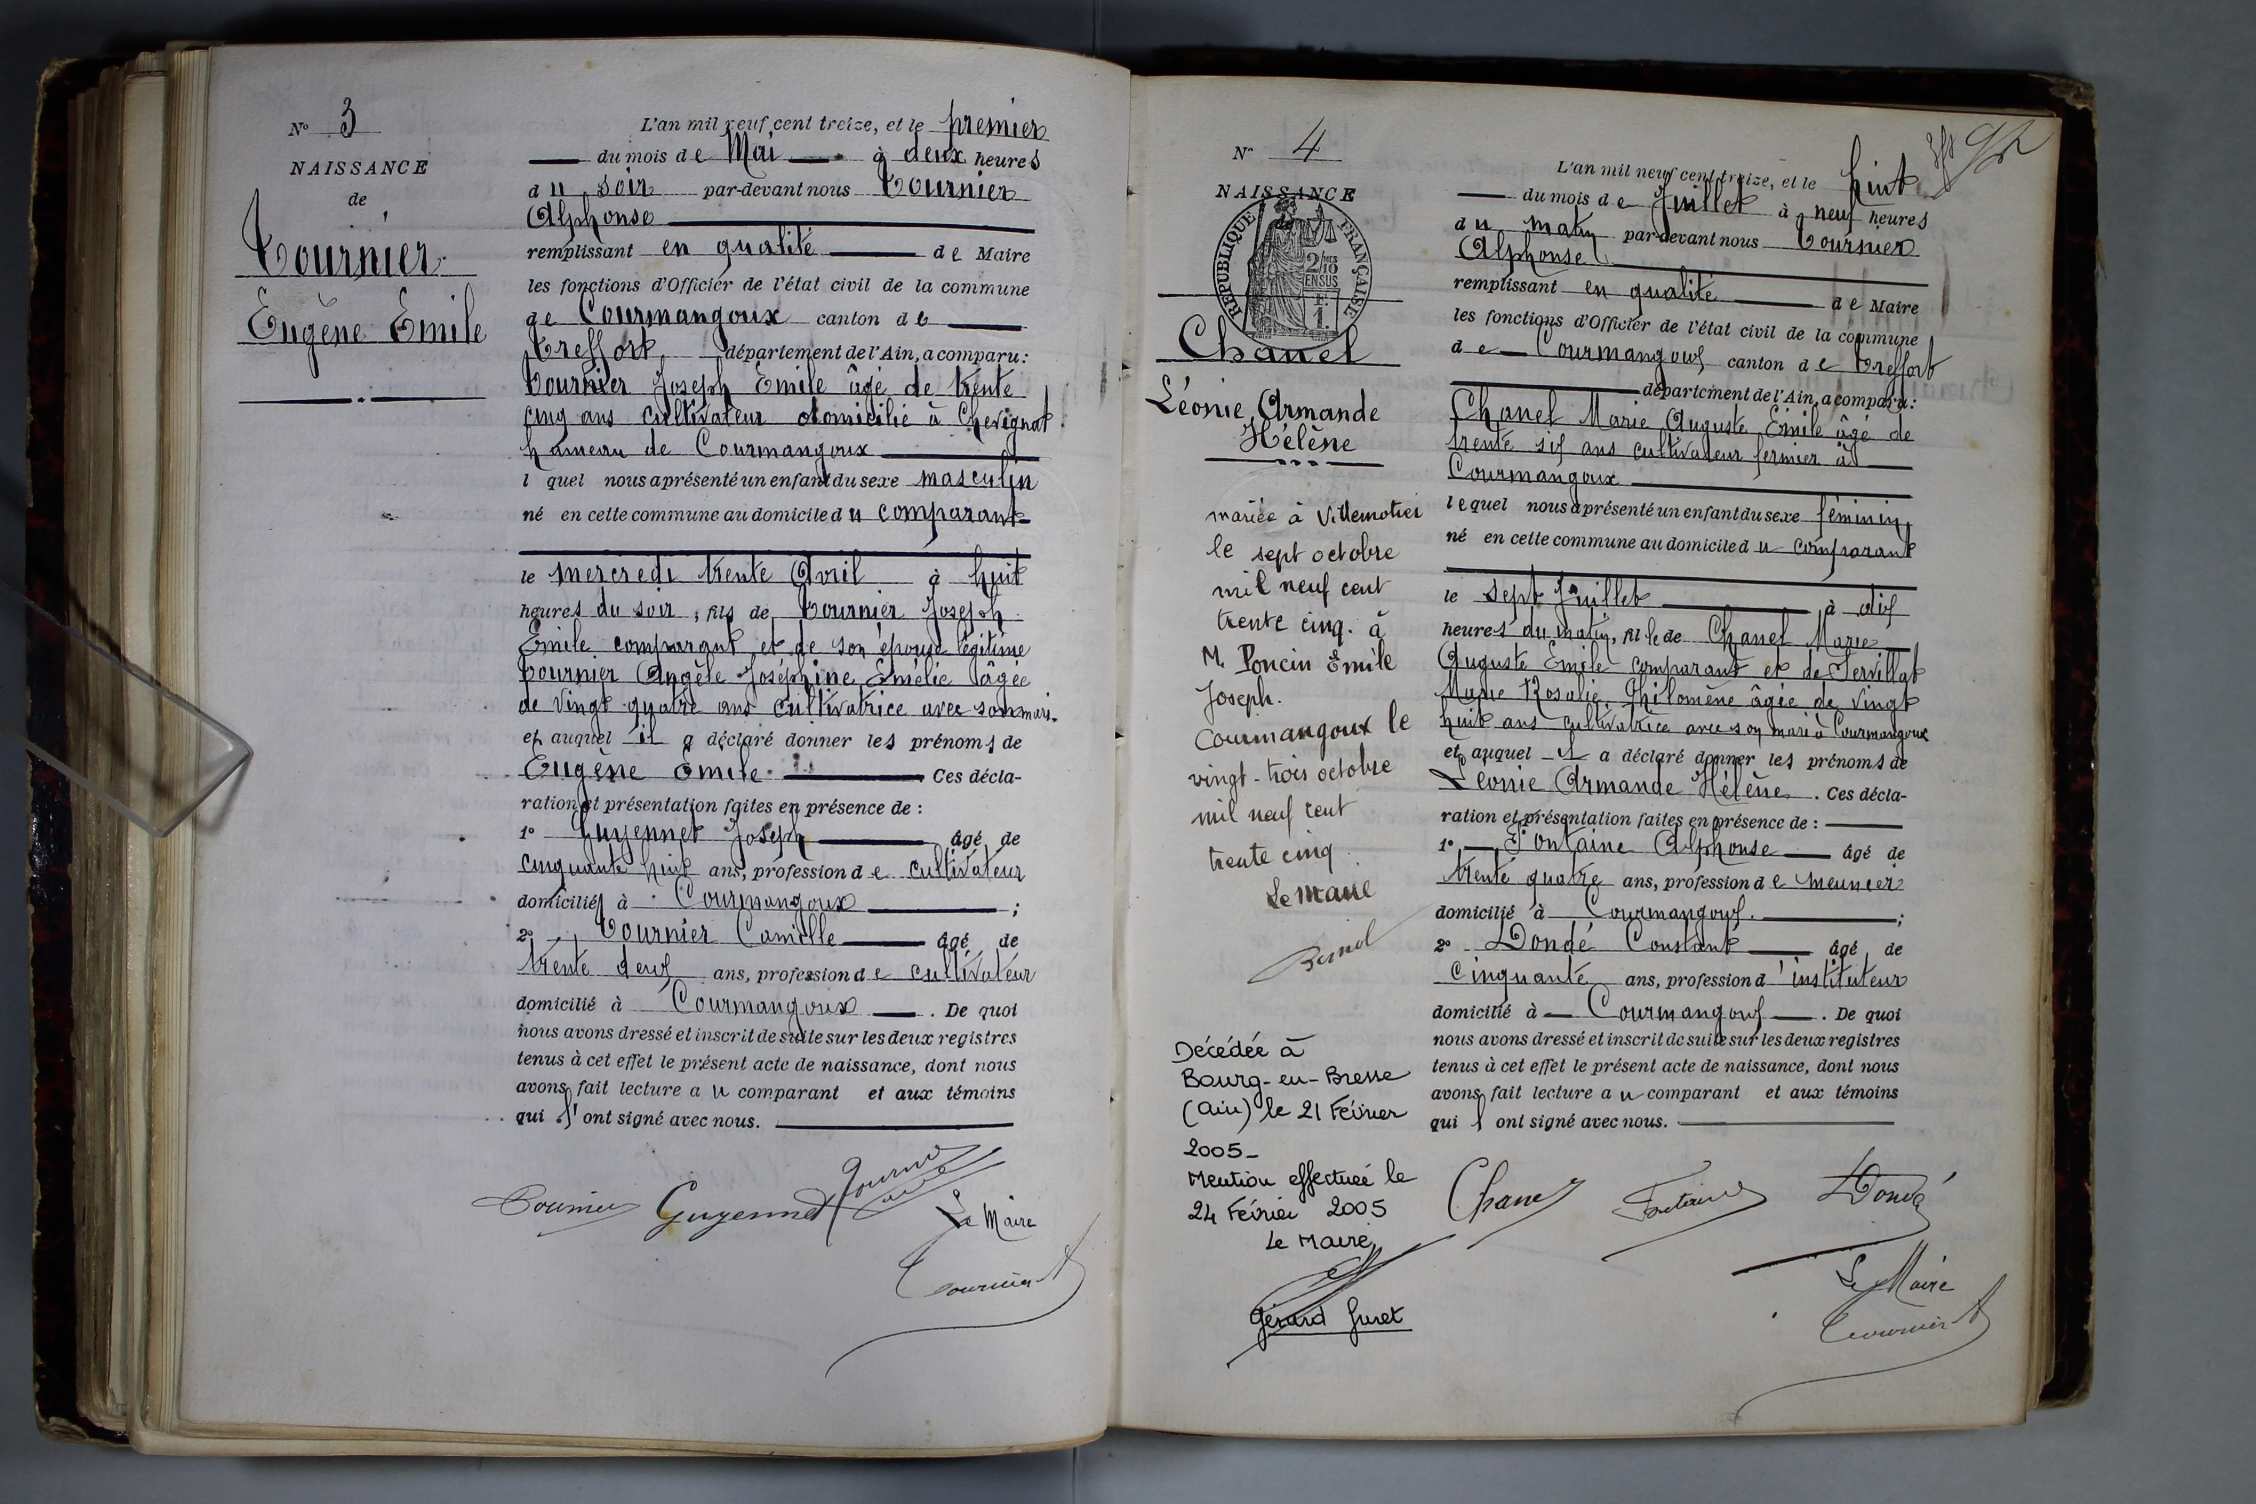 N° 3
NAISSANCE
de
Tournier
Eugène Emile
L'an mil neuf cent treize, et le premier
du mois de Mai à deux heures
du soir par-devant nous Tournier
Alphonse
remplissant en qualité de Maire
les fonctions d'Officier de l'état civil de la commune
de Courmangoux canton de
Treffort département de l'Ain, a comparu:
Tournier Joseph Emile âgé de trente
cinq ans cultivateur domicilié à Chevignat
hameau de Courmangoux
l quel nous a présenté un enfant du sexe masculin
né en cette commune au domicile du comparant
le mercredi trente Avril à huit
heures du soir, fils de Tournier Joseph
Emile comparant et de son épouse légitime
Tournier Angèle Joséphine Emélie âgée
de vingt quatre ans cultivatrice avec son mari.
et auquel il a déclaré donner les prénoms de
Eugène Emile Ces décla-
ration et présentation faites en présence de :
1° Guyennet Joseph âgé de
cinquante huit ans, profession de cultivateur
domicilié à Courmangoux ;
2° Tournier Camille âgé de
trente deux ans, profession de cultivateur
domicilié à Courmangoux . De quoi
nous avons dressé et inscrit de suite sur les deux registres
tenus à cet effet le présent acte de naissance, dont nous
avons fait lecture au comparant et aux témoins
qui l'ont signé avec nous.
Tournier Guyennet Tournier
Le Maire
Tournier A
N° 4
NAISSANCE
de
RÉPUBLIQUE FRANÇAISE
2/10
EN SUS
1 F.
Chanel
Léonie Armande
Hélène
mariée à Villemotier
le sept octobre
mil neuf cent
trente cinq. à
M. Poncin Emile
Joseph.
Courmangoux le
vingt-trois octobre
mil neuf cent
trente cinq.
Le Maire
Décédée à
Bourg-en-Bresse
(Ain) le 21 Février
2005-
Mention effectuée le
24 Février 2005
Le Maire
Gérard Guret
L'an mil neuf cent treize, et le huit
du mois de Juillet à neuf heures
du matin par-devant nous Tournier
Alphonse
remplissant en qualité de Maire
les fonctions d'Officier de l'état civil de la commune
de Courmangoux canton de Treffort
département de l'Ain, a comparu:
Chanel Marie Auguste Emile âgé de
trente six ans cultivateur fermier à
Courmangoux
lequel nous a présenté un enfant du sexe féminin
né en cette commune au domicile du comparant
le sept Juillet à dix
heures du matin, fille de Chanel Marie
Auguste Emile comparant et de Servillat
Marie Rosalie Philomène âgée de vingt
huit ans cultivatrice avec son mari à Courmangoux
et auquel il a déclaré donner les prénoms de
Léonie Armande Hélène . Ces décla-
ration et présentation faites en présence de :
1° Fontaine Alphonse âgé de
trente quatre ans, profession de meunier
domicilié à Courmangoux. ;
2° Dondé Constant âgé de
cinquante ans, profession d'instituteur
domicilié à Courmangoux . De quoi
nous avons dressé et inscrit de suite sur les deux registres
tenus à cet effet le présent acte de naissance, dont nous
avons fait lecture au comparant et aux témoins
qui l ont signé avec nous.
Chanel Fontaine Dondé
Le Maire
Tournier A